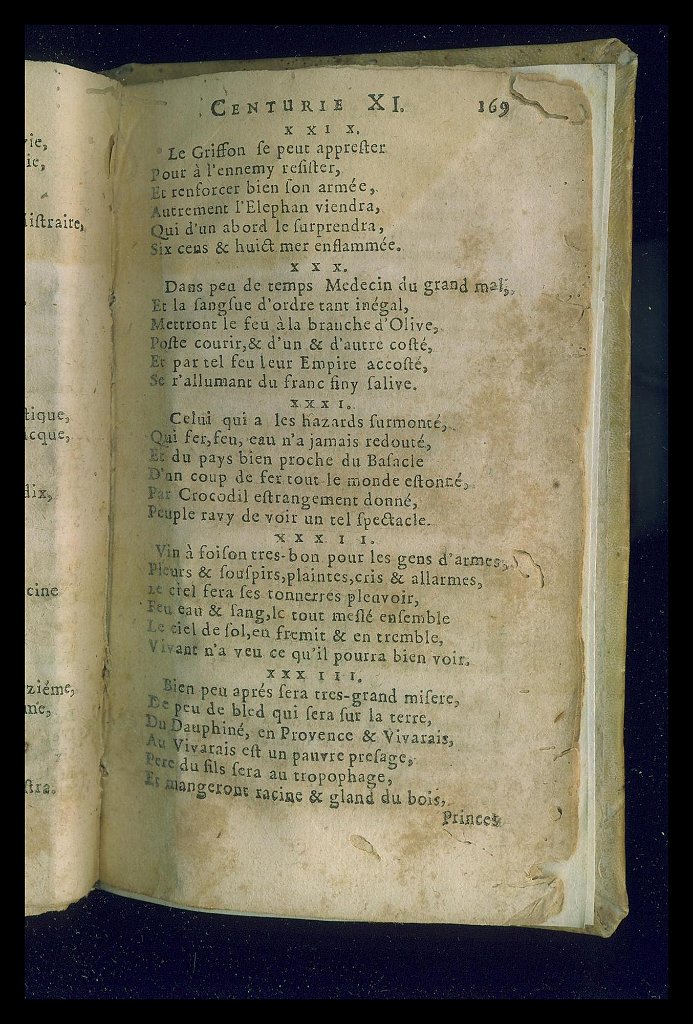 vie,
ie,
istraire,
tique,
acque,
dix,
cine
ziéme,
me,
stra.
CENTURIE XI. 169
XXIX.
Le Griffon ſe peut appreſter
Pour à l'ennemy reſiſter,
Et renforcer bien ſon armée,
Autrement l'Elephan viendra,
Qui d'un abord le ſurprendra,
Six cens & huict mer enflammée.
XXX.
Dans peu de temps Medecin du grand mal,
Et la ſangſue d'ordre tant inégal,
Mettront le feu à la branche d'Olive,
Poſte courir, & d'un & d'autre coſté,
Et par tel feu leur Empire accoſté,
Se r'allumant du franc finy ſalive.
XXXI.
Celui qui a les hazards ſurmonté,
Qui fer, feu, eau n'a jamais redouté,
Et du pays bien proche du Baſacle
D'un coup de fer tout le monde eſtonné,
Par Crocodil eſtrangement donné,
Peuple ravy de voir un tel ſpectacle.
XXXII.
Vin à foiſon tres-bon pour les gens d'armes,
Pleurs & ſouſpirs, plaintes, cris & allarmes,
Le ciel fera ſes tonnerres pleuvoir,
Feu eau & ſang, le tout meſlé enſemble
Le ciel de ſol, en fremit & en tremble,
Vivant n'a veu ce qu'il pourra bien voir.
XXXIII.
Bien peu aprés ſera tres-grand miſere,
De peu de bled qui ſera ſur la terre,
Du Dauphiné, en Provence & Vivarais,
Au Vivarais eſt un pauvre preſage,
Pere du fils ſera au tropophage,
Et mangeront racine & gland du bois,
Princes